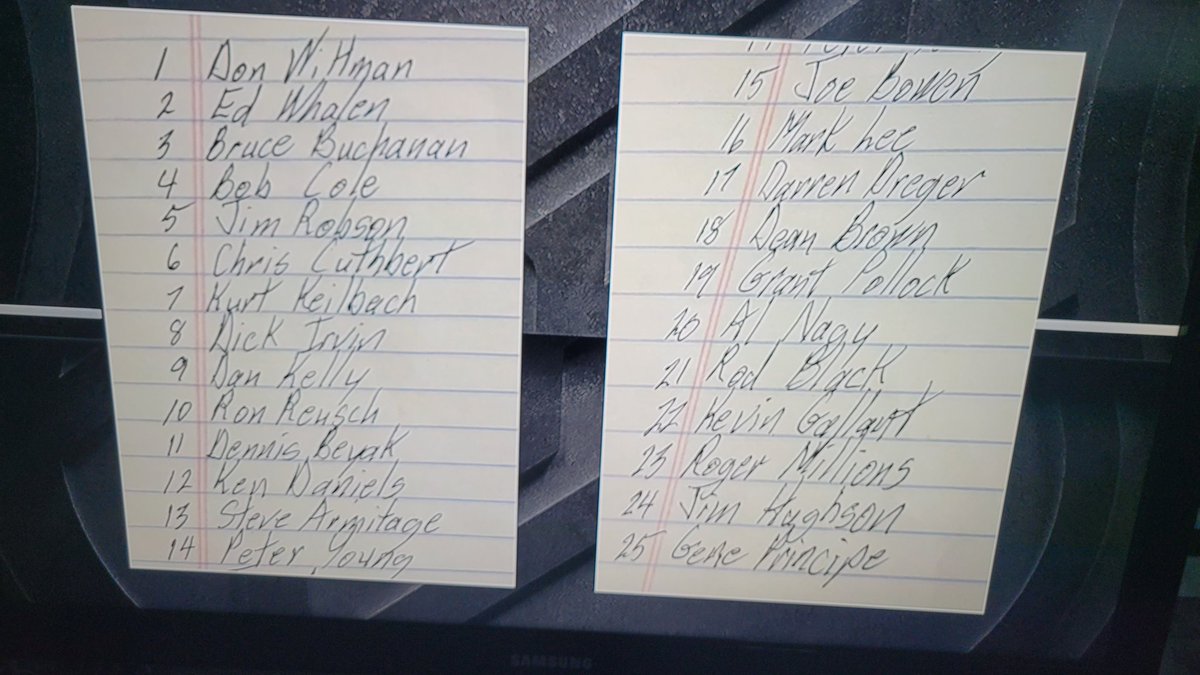 1 Don Wittman
2 Ed Whalen
3 Bruce Buchanan
4 Bob Cole
5 Jim Robson
6 Chris Cuthbert
7 Kurt Keilbach
8 Dick Irvin
9 Dan Kelly
10 Ron Reusch
11 Dennis Beyak
12 Ken Daniels
13 Steve Armitage
14 Peter Young
15 Joe Bowen
16 Mark Lee
17 Darren Dreger
18 Dean Brown
19 Grant Pollock
20 Al Nagy
21 Rod Black
22 Kevin Gallant
23 Roger Millions
24 Jim Hughson
25 Gene Principe
SAMSUNG